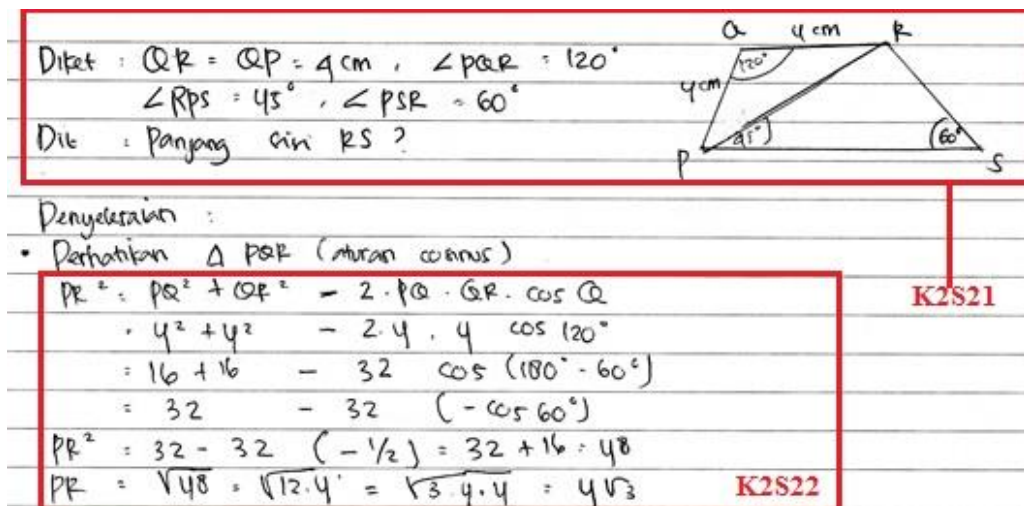 Diket : QR = QP = 4 cm , ∠PQR = 120°
∠RPS = 45° , ∠PSR = 60°
Dit : Panjang sisi RS ?
Q 4 cm R
120°
4 cm
45° 60°
P S
Penyelesaian :
• Perhatikan Δ PQR (aturan cosinus)
PR² = PQ² + QR² - 2 . PQ . QR . cos Q
= 4² + 4² - 2 . 4 . 4 cos 120°
= 16 + 16 - 32 cos (180° - 60°)
= 32 - 32 (- cos 60°)
PR² = 32 - 32 (- 1/2) = 32 + 16 = 48
PR = √48 = √12.4 = √3.4.4 = 4√3
K2S21
K2S22